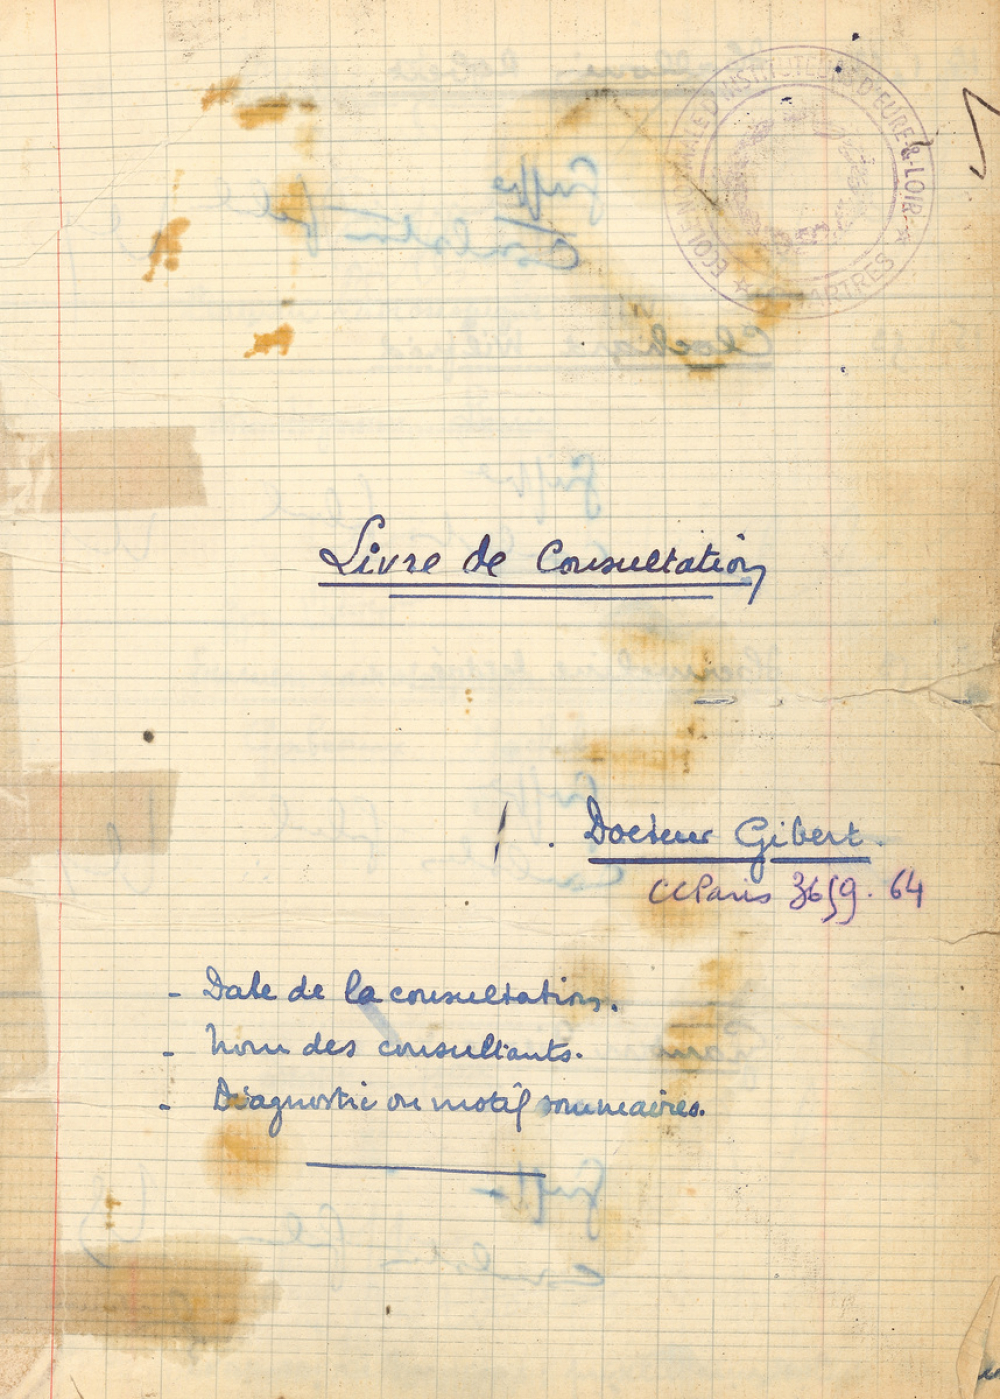 ECOLE NORMALE D'INSTITUTEURS D'EURE-&-LOIR
CHARTRES
Livre de Consultation
Docteur Gibert.
CCParis 3659. 64
- Date de la consultation.
- Nom des consultants.
- Diagnostic ou motif sommaires.